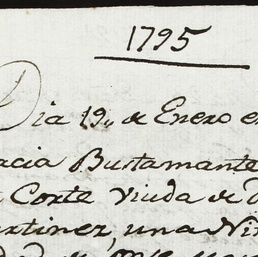 1795
Dia 19,, de Enero e
acia Bustamante
Corte Viuda de D
artinez, una Ni